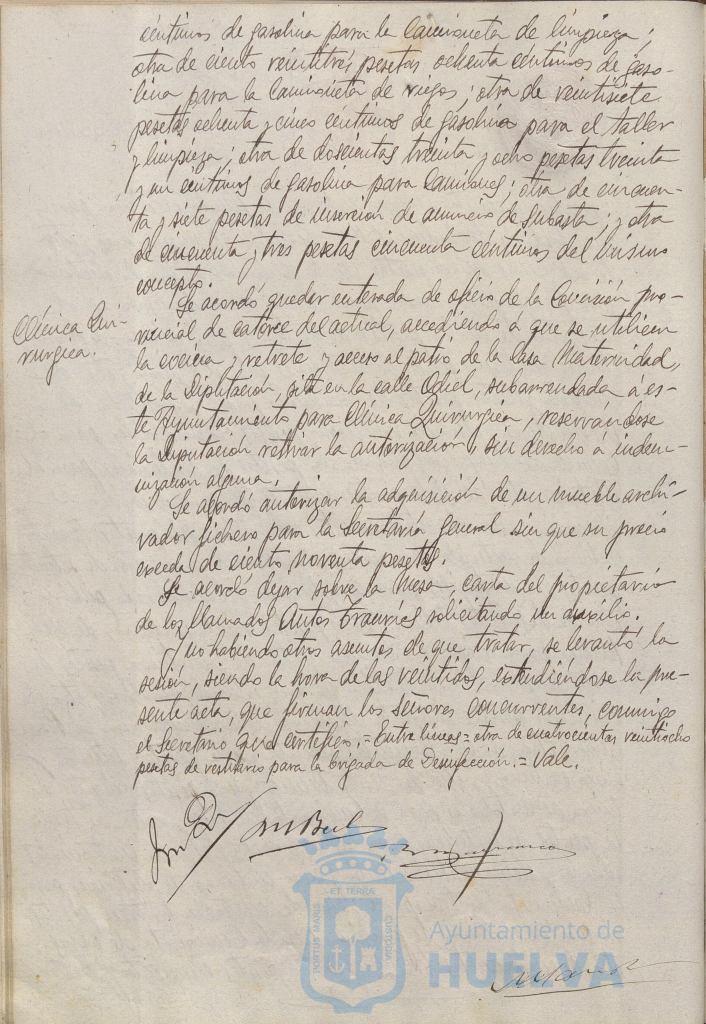 céntimos de gasolina para la Camioneta de limpieza;
otra de ciento veintitres pesetas ochenta céntimos de gaso-
lina para la Camioneta de riegos; otra de veintisiete
pesetas ochenta y cinco centimos de gasolina para el taller
y limpieza; otra de doscientas treinta y ocho pesetas treinta
y un céntimos de gasolina para Camiones; otra de cincuen-
ta y siete pesetas de inserción de anuncio de subasta; y otra
de cincuenta y tres pesetas cincuenta centimos del mismo
concepto.
Clínica Qui-
rurgica.
Se acordó quedar enterada de oficio de la Comisión pro-
vincial de catorce del actual, accediendo á que se utilicen
la cocina y retrete y acceso al patio de la Casa Maternidad,
de la Diputación, sita en la calle Odiel, subarrendada á es-
te Ayuntamiento para Clínica Quirurgica, reservandose
la Diputación retirar la autorización, sin derecho á indem-
nización alguna.
Se acordó autorizar la adquisición de un mueble archi-
vador fichero para la Secretaria general sin que su precio
exceda de ciento noventa pesetas.
Se acordó dejar sobre la mesa, carta del propietario
de los llamados Autos tranvias solicitando un auxilio.
Y no habiendo otros asuntos de que tratar, se levantó la
sesión, siendo la hora de las veintidos, extendiéndose la pre-
sente acta, que firman los señores concurrentes, conmigo
el Secretario que certifico.=Entre líneas=otra de cuatrocientas veintiocho
pesetas de vestuario para la brigada de Desinfección.=Vale.
PORTUS MARIS
ET TERRÆ
CUSTODIA
Ayuntamiento de
HUELVA